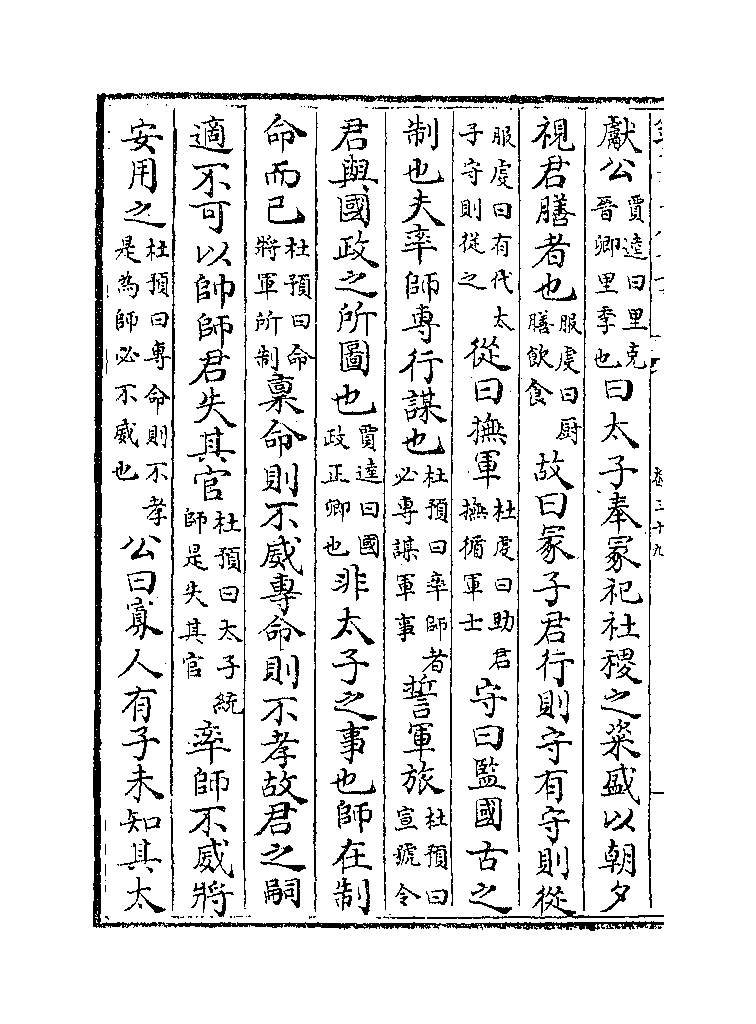 獻公賈逵曰里克晉卿里季也曰太子奉冢祀社稷之粢盛以朝夕
視君膳者也服虔曰厨膳飲食故曰冢子君行則守有守則從
服虔曰有代太子守則從之從曰撫軍杜虔曰助君撫循軍士守曰監國古之
制也夫率師專行謀也杜預曰率師者必專謀軍事誓軍旅杜預曰宣號令
君與國政之所圖也賈逵曰國政正卿也非太子之事也師在制
命而已杜預曰命將軍所制稟命則不威專命則不孝故君之嗣
適不可以帥師君失其官杜預曰太子統師是失其官率師不威將
安用之杜預曰專命則不孝是為師必不威也公曰寡人有子未知其太
卷三十九